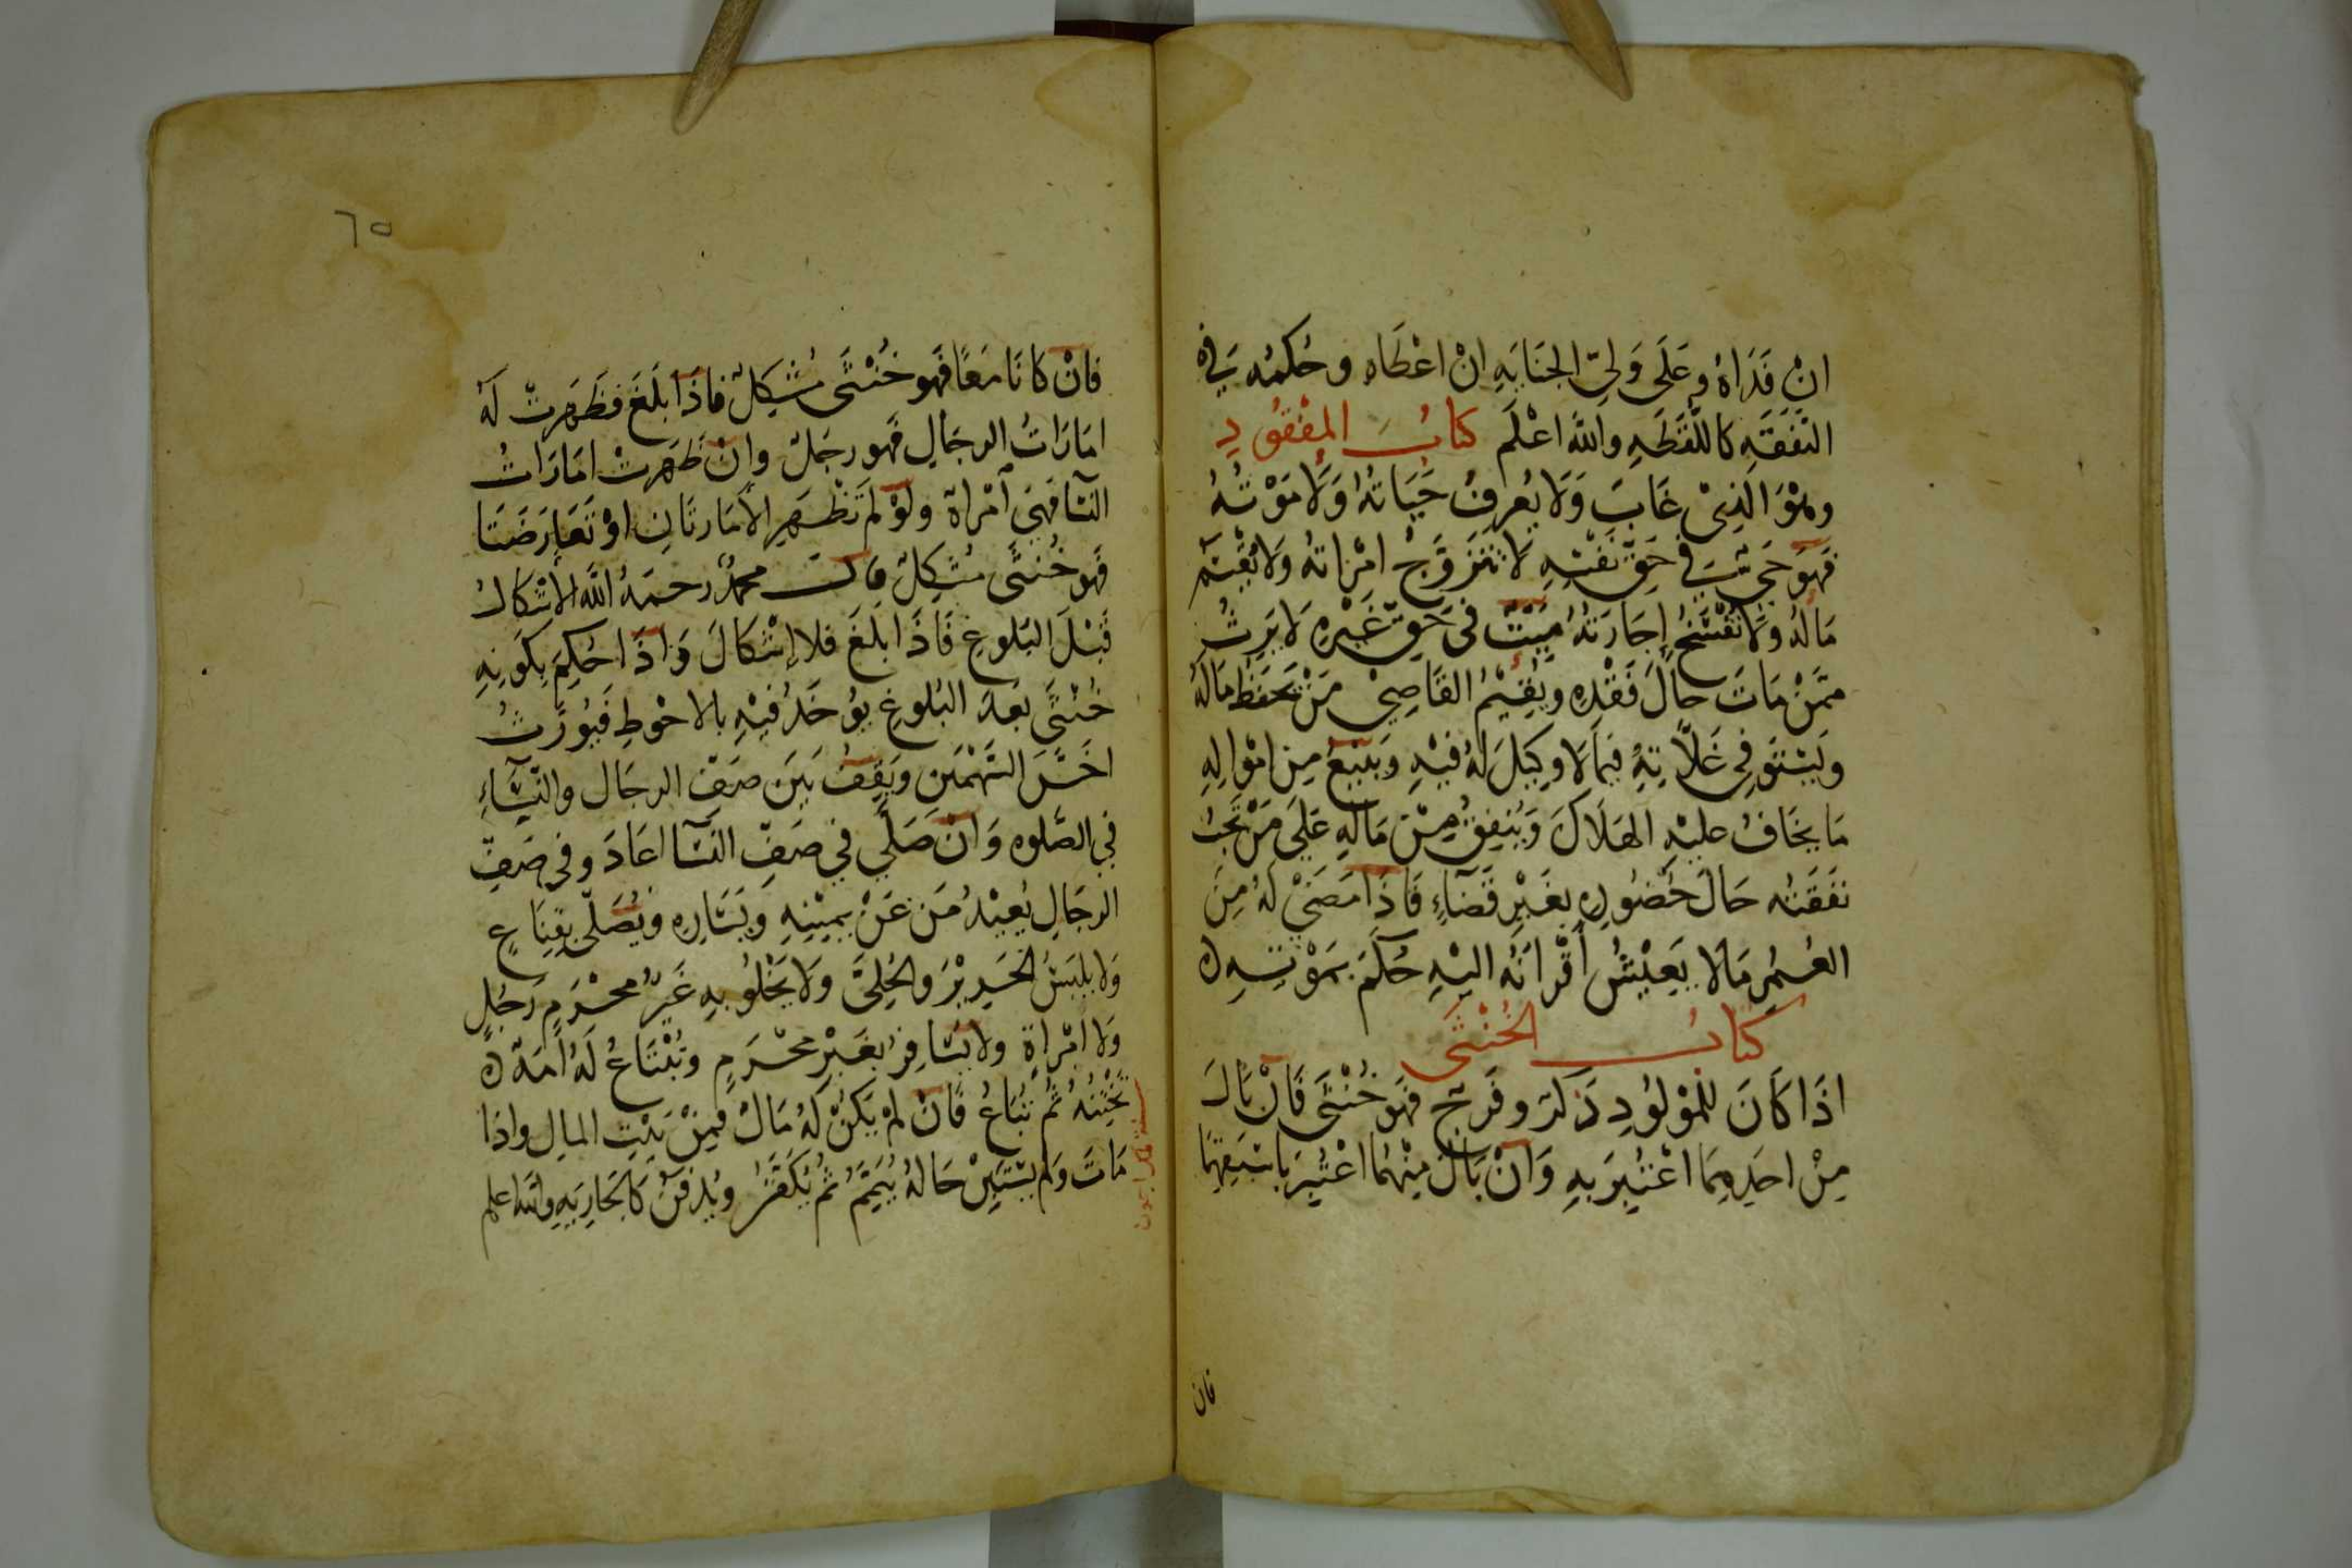 ان فَدَاهُ وعَلَى وَلِيّ الجنَايَهِ انْ اعْطَاه وحُكمُه في
النَّفَقَهِ كاللُّقَطَهِ والله اعْلَم كتابُ المفْقُودِ
وهُوَ الَّذِىْ غَابَ وَلَا يُعرفُ حَيَاتهُ وَلَا مَوْتُهُ
فهَوَ حَىّ فى حَقّ نَفْسِهِ لَا تتَزَوَّجُ امْرَاتهُ وَلَا يُقْسَم
مَالهُ ولَا تُفْسَخُ إجَارَتهُ مَيّتٌ فى حَقّ غَيْرهِ لَا يَرثُ
ممَّنْ مَاتَ حَالَ فَقْدِهِ ويُقيْمُ القَاضِىْ مَنْ يَحفَظُ مَالهُ
ويَسْتَوفِى غَلَّاتِهُ فيمَا لَا وَكِيلَ لهُ فيْهِ ويَبيْعُ مِن امْوَالِهِ
مَا يخَافُ عليْهِ الهَلَاكَ وَيُنفِقُ مِنْ مَالهِ عَلَى مَنْ تَجبُ
نفَقَتُه حَالَ حُضُورِهِ بغَيْرِ قَضَاءٍ فَاذَا مَضَىْ لهُ مِنَ
العُمُرِ مَا لا يَعِيْشُ أقْرَانَهُ اليْهِ حُكمَ بمَوْتهِ
كتابُ الخُنْثَى
اذَا كَانَ للمَوْلوُدِ ذَكَرٌ وفَرَجٌ فهَو خُنْثَى فَانْ بَالَ
مِنْ احَدِهِمَا اعْتُبِرَ بهِ وَانْ بَالَ مِنْهُمَا اعْتُبِرَ بَاسْبَقِهِمَا
فان
٦٥
فانْ كانَا مَعًا فَهو خُنْثَى مُشْكِلٌ فاذَا بَلَغَ فظَهَرتْ لهُ
امَارَاتُ الرجَالِ فهو رجَلٌ وانْ ظَهَرتْ امَارَاتُ
النسَا فهىَ امْرأة ولوْ لمَ تَظْهَرِ الأمَارتَانِ اوْ تَعَارَضَتَا
فهَو خُنثَى مُشكِلٌ قالَ محمدٌ رحمَهُ اللَّه الاشْكَالُ
قَبْلَ البَلوغِ فَاذَا بَلَغَ فلا إشْكَالَ وَاذَا حُكِمَ بكَونِهِ
خُنْثَى بَعدَ البُلوغِ يؤُخَذُ فيْهِ بالاحْوَطِ فَيُورَّثُ
اخَسَّ السَّهْمَينِ ويَقِفُ بَيَن صَفّ الرجَال والنّسَاءِ
فى الصَّلوه وَانْ صَلَّى فى صَفّ النسَا اعَادَ وفى صَفِّ
الرجَالِ يُعيْدُ مَن عَنْ يمِيْنِهِ وَيَسَارِهِ ويُصَلّى بقِنَاعٍ
وَلا يلبَسُ الحَرِيْرَ والحُلِىَّ وَلَا يَخْلوُ بهِ غَيرُ محْرَمٍ رَجُلٍ
وَلا امْراةٍ ولا يُسَافِرُ بغَيْرِ محْرَمٍ وتُبْتَاعُ لهُ امَةٌ
تخْتِنُهُ ثُم تُبَاعُ فَانْ لمْ يَكنْ لهُ مَالٌ فمِنْ بَيْتِ المالِ واذا
مَاتَ وَلم يسْتَبِنْ حَالهُ يُيَمَّمُ ثُم يُكَفَّنُ ويُدْفَنُ كالجَارِيَهِ والله اعلم